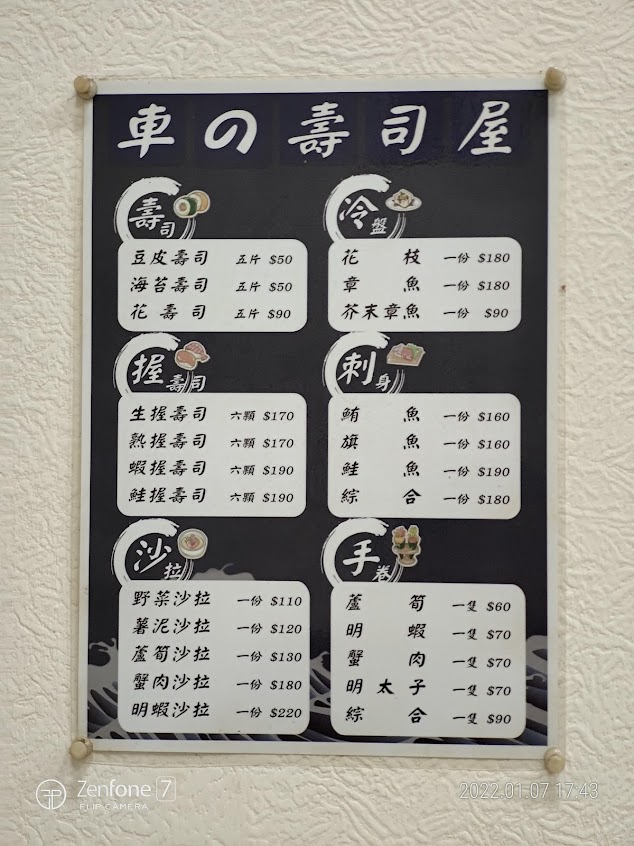 車の壽司屋
壽司
豆皮壽司 五片 $50
海苔壽司 五片 $50
花壽司 五片 $90
冷盤
花枝 一份 $180
章魚 一份 $180
芥末章魚 一份 $90
握壽司
生握壽司 六顆 $170
熟握壽司 六顆 $170
蝦握壽司 六顆 $190
鮭握壽司 六顆 $190
刺身
鮪魚 一份 $160
旗魚 一份 $160
鮭魚 一份 $190
綜合 一份 $180
沙拉
野菜沙拉 一份 $110
薯泥沙拉 一份 $120
蘆筍沙拉 一份 $130
蟹肉沙拉 一份 $180
明蝦沙拉 一份 $220
手卷
蘆筍 一隻 $60
明蝦 一隻 $70
蟹肉 一隻 $70
明太子 一隻 $70
綜合 一隻 $90
Zenfone 7
FLIP CAMERA
2022.01.07 17:43